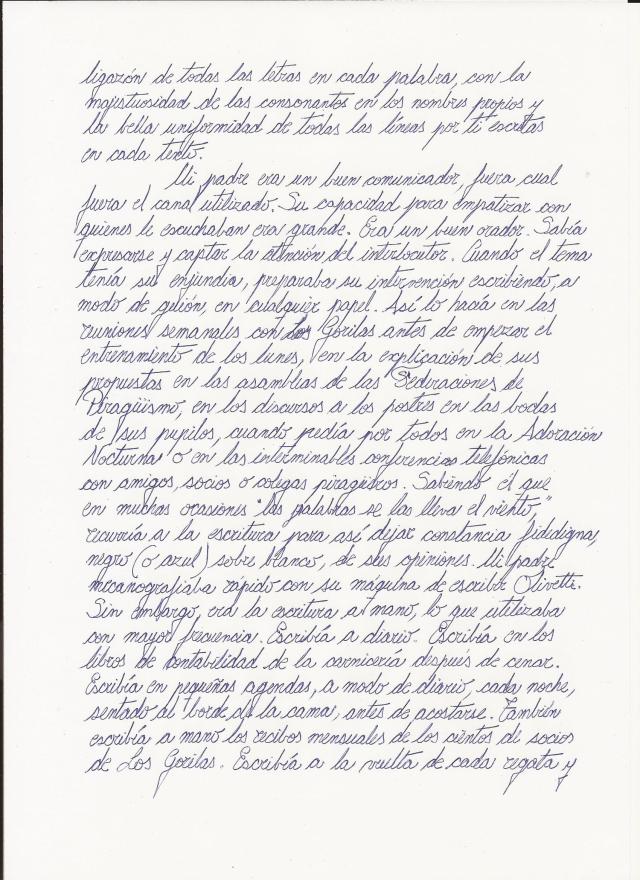 ligazón de todas las letras en cada palabra, con la
majestuosidad de las consonantes en los nombres propios y
la bella uniformidad de todas las líneas por ti escritas
en cada texto.
Mi padre era un buen comunicador, fuera cual
fuera el canal utilizado. Su capacidad para empatizar con
quienes le escuchaban era grande. Era un buen orador. Sabía
expresarse y captar la atención del interlocutor. Cuando el tema
tenía su enjundia, preparaba su intervención escribiendo, a
modo de guión, en cualquier papel. Así lo hacía en las
reuniones semanales con Los Gorilas antes de empezar el
entrenamiento de los lunes, en la explicación de sus
propuestas en las asambleas de las Federaciones de
Piragüismo, en los discursos a los postres en las bodas
de sus pupilos, cuando pedía por todos en la Adoración
Nocturna o en las interminables conferencias telefónicas
con amigos, socios o colegas piragüeros. Sabiendo el que
en muchas ocasiones "las palabras se las lleva el viento,"
recurría a la escritura para así dejar constancia fidedigna,
negro (o azul) sobre blanco, de sus opiniones. Mi padre
mecanografiaba rápido con su máquina de escribir Olivetti.
Sin embargo, era la escritura a mano, lo que utilizaba
con mayor frecuencia. Escribía a diario. Escribía en los
libros de contabilidad de la carnicería después de cenar.
Escribía en pequeñas agendas, a modo de diario, cada noche,
sentado al borde de la cama, antes de acostarse. También
escribía a mano los recibos mensuales de los cientos de socios
de Los Gorilas. Escribía a la vuelta de cada regata y